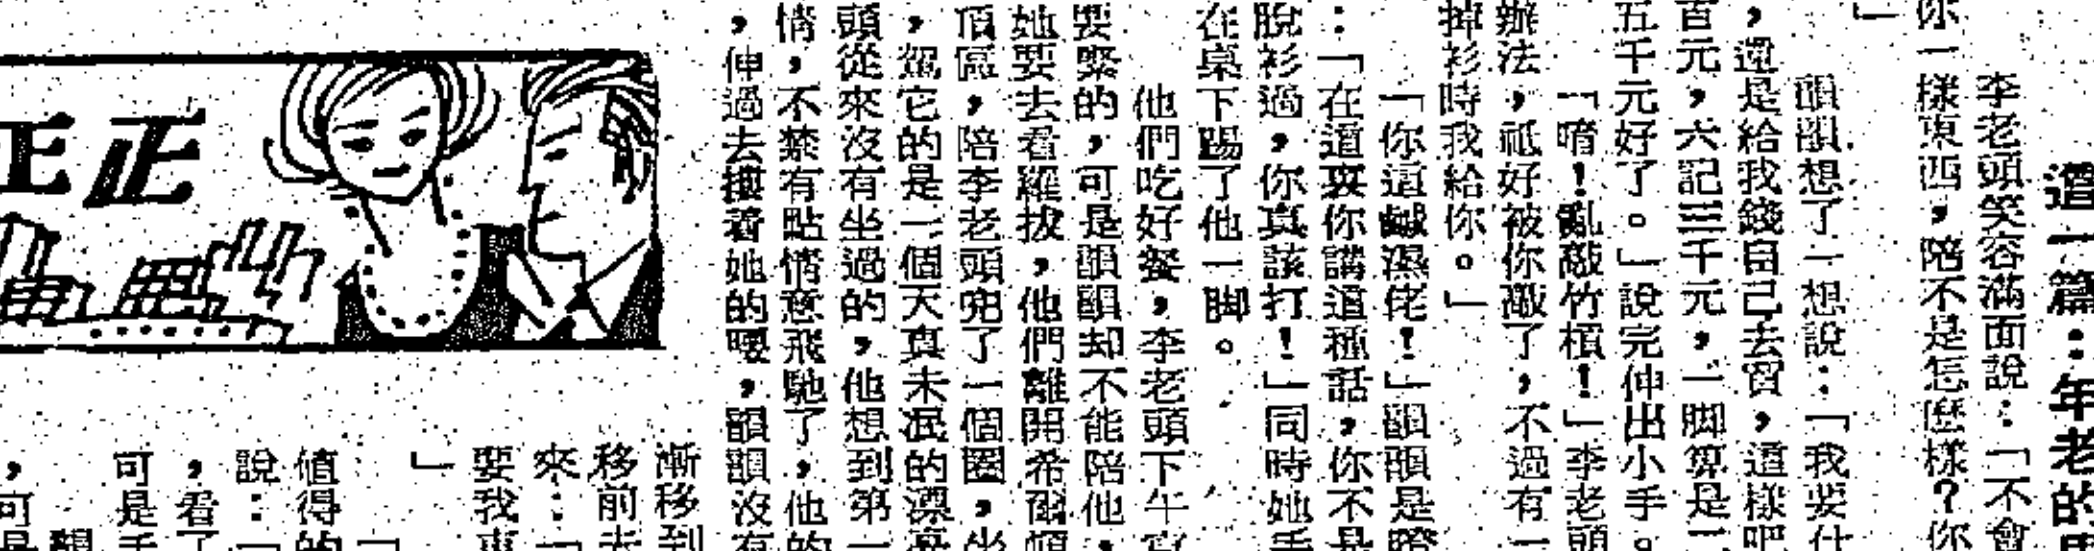 這一篇：年老的
李老頭笑容滿面說：「不會
你一樣東西，陪不是怎麼樣？你
」
韻韻想了一想說：「我要什
，還是給我錢自己去買，這樣吧
百元，六記三千元，一脚算是二
五千元好了。」說完伸出小手。
「唷！亂敲竹槓！」李老頭
辦法，祗好被你敲了，不過有一
掉衫時我給你。」
「你這鹹濕佬！」韻韻是
：「在這裏你講這種話，你不是
脫衫過，你真該打！」同時她手
在桌下踢了他一脚。
他們吃好餐，李老頭下午
要緊的，可是韻韻却不能陪他，
她要去看羅拔，他們離開希爾頓
頂區，陪李老頭兜了一個圈，坐
，駕它的是一個天真未泯的漂亮
頭從來沒有坐過的，他想到第一
情，不禁有點情意飛馳了，他的
，伸過去摟着她的腰，韻韻沒有
正
漸移到
移前去
來：「
要我
」
「
值得的
說：「
，看了
可是手
韻
，可是